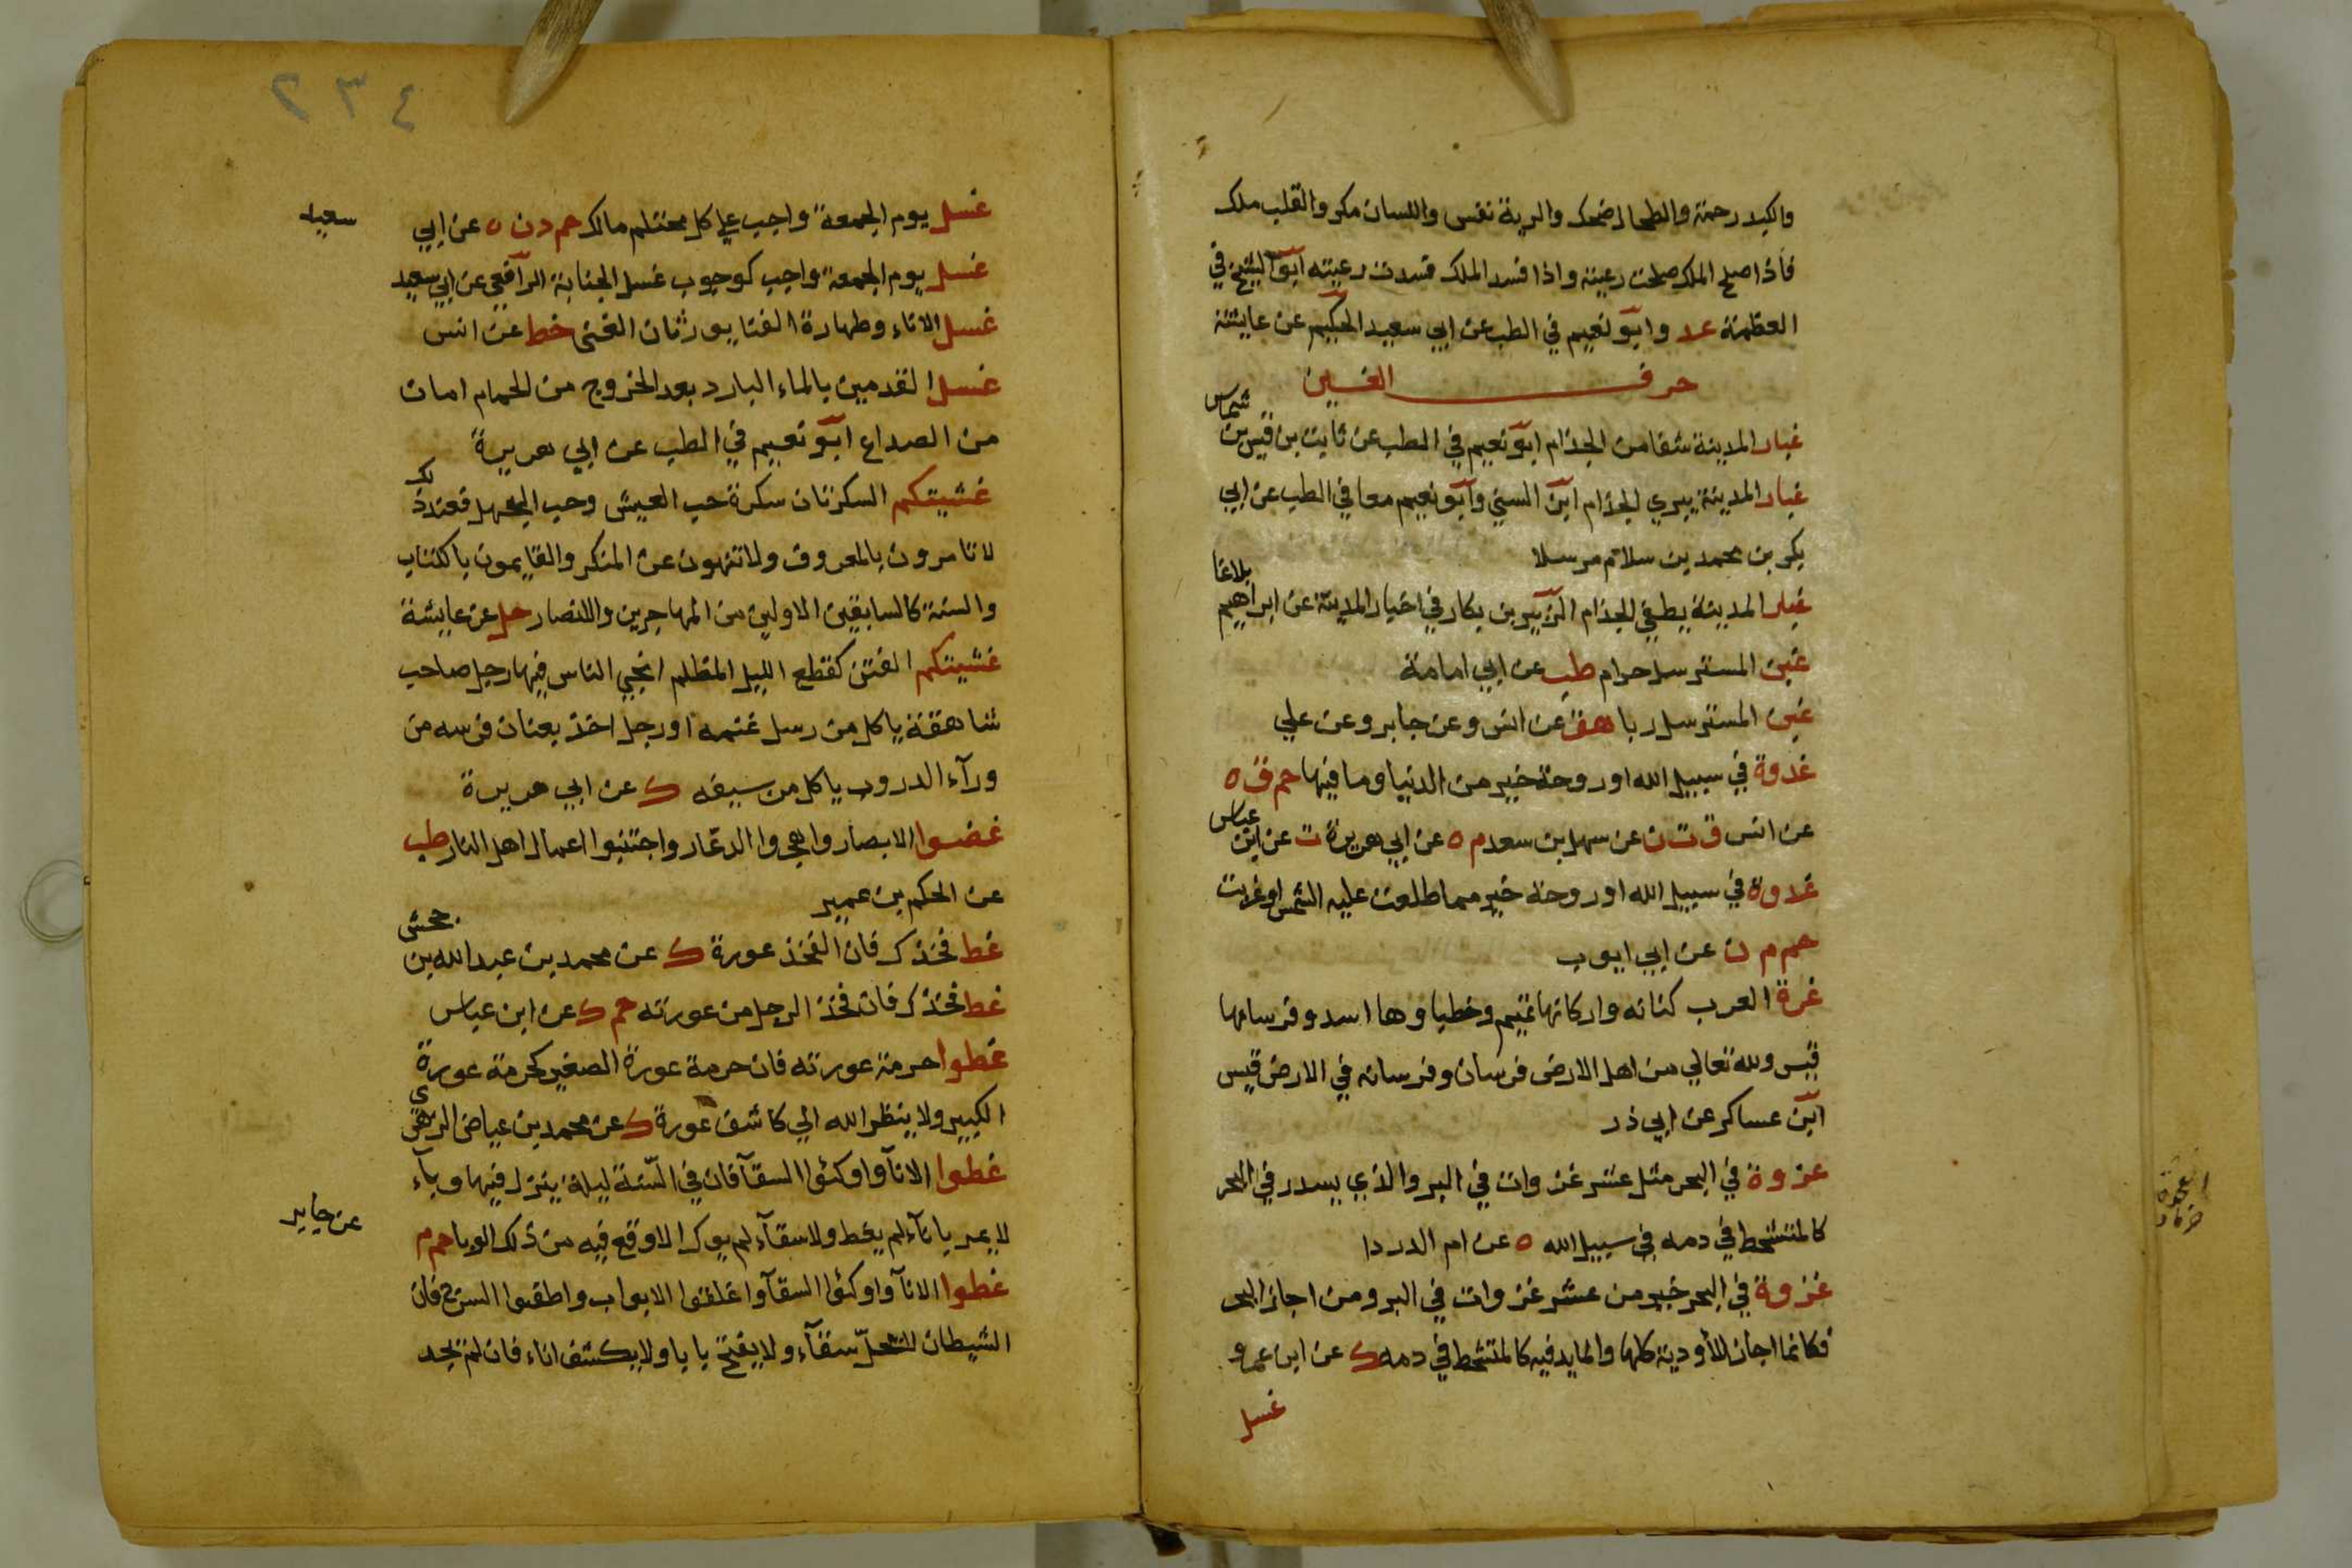 والكبد رحمة والطحال ضحك والرية نفس واللسان مكر والقلب ملك
فاذا صلح الملك صلحت رعيته واذا فسد الملك فسدت رعيته ابو الشيخ في
العظمة عد وابو نعيم في الطب عن ابي سعيد الحكيم عن عايشة
حرف الغين
غبار المدينة شفا من الجذام ابو نعيم في الطب عن ثابت بن قيس بن شماس
غبار المدينة يبري الجذام ابن السني وابو نعيم معا في الطب عن ابي
بكر بن محمد بن سلام مرسلا
غبار المدينة يطفي الجذام الزبير بن بكار في اخبار المدينة عن ابراهيم بلاغا
غبن المسترسل حرام طب عن ابي امامة
غبن المسترسل ربا هق عن انس وعن جابر وعن علي
غدوة في سبيل الله او روحة خير من الدنيا وما فيها حم ق ه
عن انس ق ت ن عن سهل بن سعد م ه عن ابي هريرة ت عن ابن عباس
غدوة في سبيل الله او روحة خير مما طلعت عليه الشمس او غربت
حم م ن عن ابي ايوب
غرة العرب كنانه واركانها تميم وخطباوها اسد وفرسانها
قيس ولله تعالي من اهل الارض فرسان وفرسانه في الارض قيس
ابن عساكر عن ابي ذر
غزوة في البحر مثل عشر غزوات في البر والذي يسدر في البحر
كالمتشحط في دمه في سبيل الله ه عن ام الدردا
غزوة في البحر خير من عشر غزوات في البر ومن اجاز البحر
فكانما اجاز الأودية كلها والمايد فيه كالمتشحط في دمه ك عن ابن عمرو
غسل
٢٣٤
غسل يوم الجمعة واجب علي كل محتلم مالك حم د ن ه عن ابي سعيد
غسل يوم الجمعة واجب كوجوب غسل الجنابة الرافعي عن ابي سعيد
غسل الاناء وطهارة الفنا يورثان الغنى خط عن انس
غسل القدمين بالماء البارد بعد الخروج من الحمام امان
من الصداع ابو نعيم في الطب عن ابي هريرة
غشيتكم السكرتان سكرة حب العيش وحب الجهل فعند ذلك
لا تامرون بالمعروف ولا تنهون عن المنكر والقايمون بالكتاب
والسنة كالسابقين الاولين من المهاجرين والانصار حل عن عايشة
غشيتكم الفتن كقطع الليل المظلم انجي الناس فيها رجل صاحب
شاهقة ياكل من رسل غنمه او رجل اخذ بعنان فرسه من
ورآء الدروب ياكل من سيفه ك عن ابي هريرة
غضوا الابصار واهجروا الدعار واجتنبوا اعمال اهل النار طب
عن الحكم بن عمير
غط فخذك فان الفخذ عورة ك عن محمد بن عبد الله بن جحش
غط فخذك فان فخذ الرجل من عورته حم ك عن ابن عباس
غطوا حرمة عورته فان حرمة عورة الصغير كحرمة عورة
الكبير ولا ينظر الله الي كاشف عورة ك عن محمد بن عياض الزهري
غطوا الانآ واوكئوا السقآ فان في السنة ليلة ينزل فيها وبآء
لا يمر باناء لم يغط ولا سقآء لم يوك الا وقع فيه من ذلك الوبا حم م عن جابر
غطوا الانآ واوكئوا السقآ واغلقوا الابواب واطفوا السرج فان
الشيطان لا يحل سقآء ولا يفتح بابا ولا يكشف اناء فان لم يجد